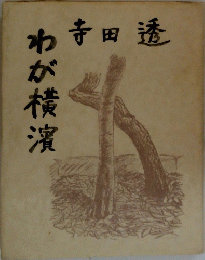 わが横濱
寺田透